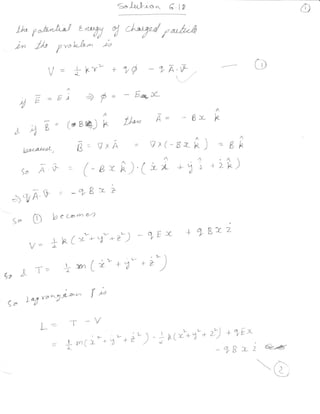 Solution 6.18
①
the potential Energy of charged particle
in the problem is
V = ½ k r² + q φ - q A⃗.v⃗ — ①
if E⃗ = E î ⇒ φ = - E x
& if B⃗ = (B) k̂ then A⃗ = - B x k̂
because, B⃗ = ∇×A⃗ = ∇×(-B x k̂) = B k̂
So A⃗.v⃗ = (-B x k̂).(ẋ î + ẏ ĵ + ż k̂)
⇒ A⃗.v⃗ = - q B x ż
So ① becomes
V = ½ k (x² + y² + z²) - q E x + q B x ż
& T = ½ m (ẋ² + ẏ² + ż²)
So Lagrangian is
L = T - V
= ½ m (ẋ² + ẏ² + ż²) - ½ k (x² + y² + z²) + q E x
- q B x ż
— ②